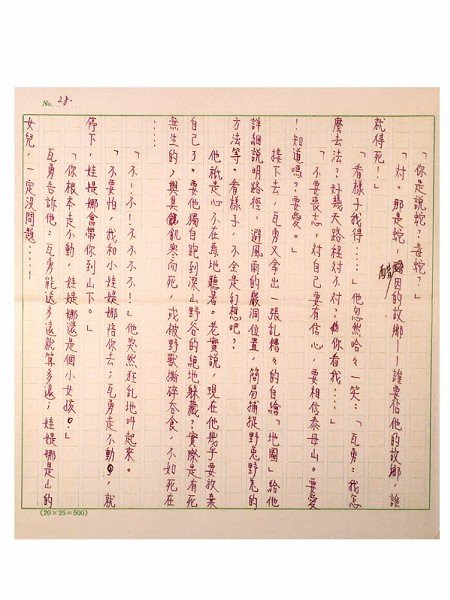 No. 28.
「你是說蛇？毒蛇？」
「對。那是蛇，醋因的故鄉——誰要佔他的故鄉，誰
就得死！」
「看樣子我得……」他忽然哈々一笑：「瓦勇：我怎
麼去法？好幾天路程對不對？你看我……」
「不要喪志，對自己要有信心，要相信泰母山。要愛
！知道嗎？要愛。」
接下去，瓦勇又拿出一張亂糟々的自繪「地圖」給他
詳細說明路徑，避風雨的巖洞位置，簡易捕捉野兔野羌的
方法等。看樣子，不全是幻想吧？
他祇是心不在焉地聽著。老實說，現在他幾乎要放棄
自己了。要他獨自跑到深山野谷的絕地躲藏？實際是有死
無生的，與其飢餓而死，或被野獸撕碎吞食，不如死在
……
「不！不！不不不不……！」他突然狂亂地叫起來。
「不要怕，我和小娃媞娜陪你去；瓦勇走不動，就
停下，娃媞娜會帶你到山下。」
「你根本走不動，娃媞娜還是個小女孩。」
瓦勇告訴他：瓦勇能送多遠就算多遠；娃媞娜是山的
女兒，一定沒問題……！
(20×25=500)